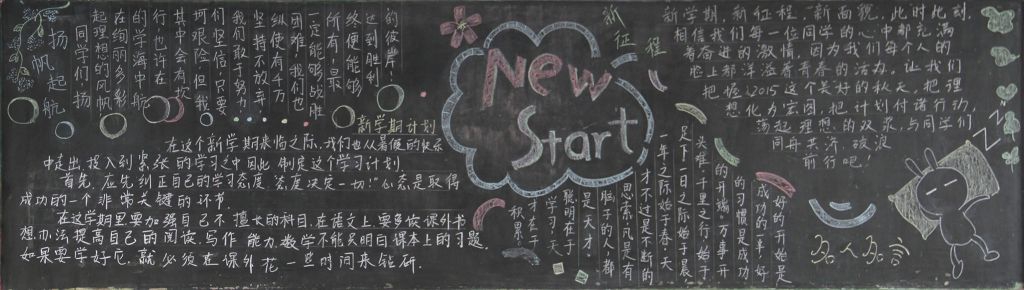 扬帆起航
同学们，扬
起理想的风帆
在绚丽多彩
的学海中航
行，也许在
其中会有坎
坷艰险，但我
们坚信，只要
我们敢于努力
坚持不放弃
纵使有千万
困难，我们也
一定能够战胜
所有，最
终便能够
达到胜利
的彼岸！
新学期计划
在这个新学期来临之际，我们也从暑假的快乐
中走出，投入到紧张的学习之中因此，制定这个学习计划
首先，应先纠正自己的学习态度，态度决定一切！心态是取得
成功的一个非常关键的环节.
在这学期里要加强自己不擅长的科目，在语文上，要多读课外书
想办法提高自己的阅读、写作能力数学不能只明白课本上的习题，
如果要学好它，就必须在课外花一些时间来钻研.
New
Start
新征程
新学期，新征程，新面貌，此时此刻，
相信我们每一位同学的心中都充满
着奋进的激情，因为我们每个人的
脸上都洋溢着青春的活力。让我们
把握2015这个美好的秋天，把理
想化为宏图，把计划付诸行动，
荡起理想的双桨，与同学们
同舟共济，破浪
前行吧！
名人名言
好的开始是
成功的一半，好
的习惯是成功
的开端。万事开
头难，千里之行，始于
足下一日之际始于晨，
一年之际始于春。天
才不过是不断的
思索，凡是有
脑子的人，都
是天才。
聪明在于
学习，天
才在于
积累。